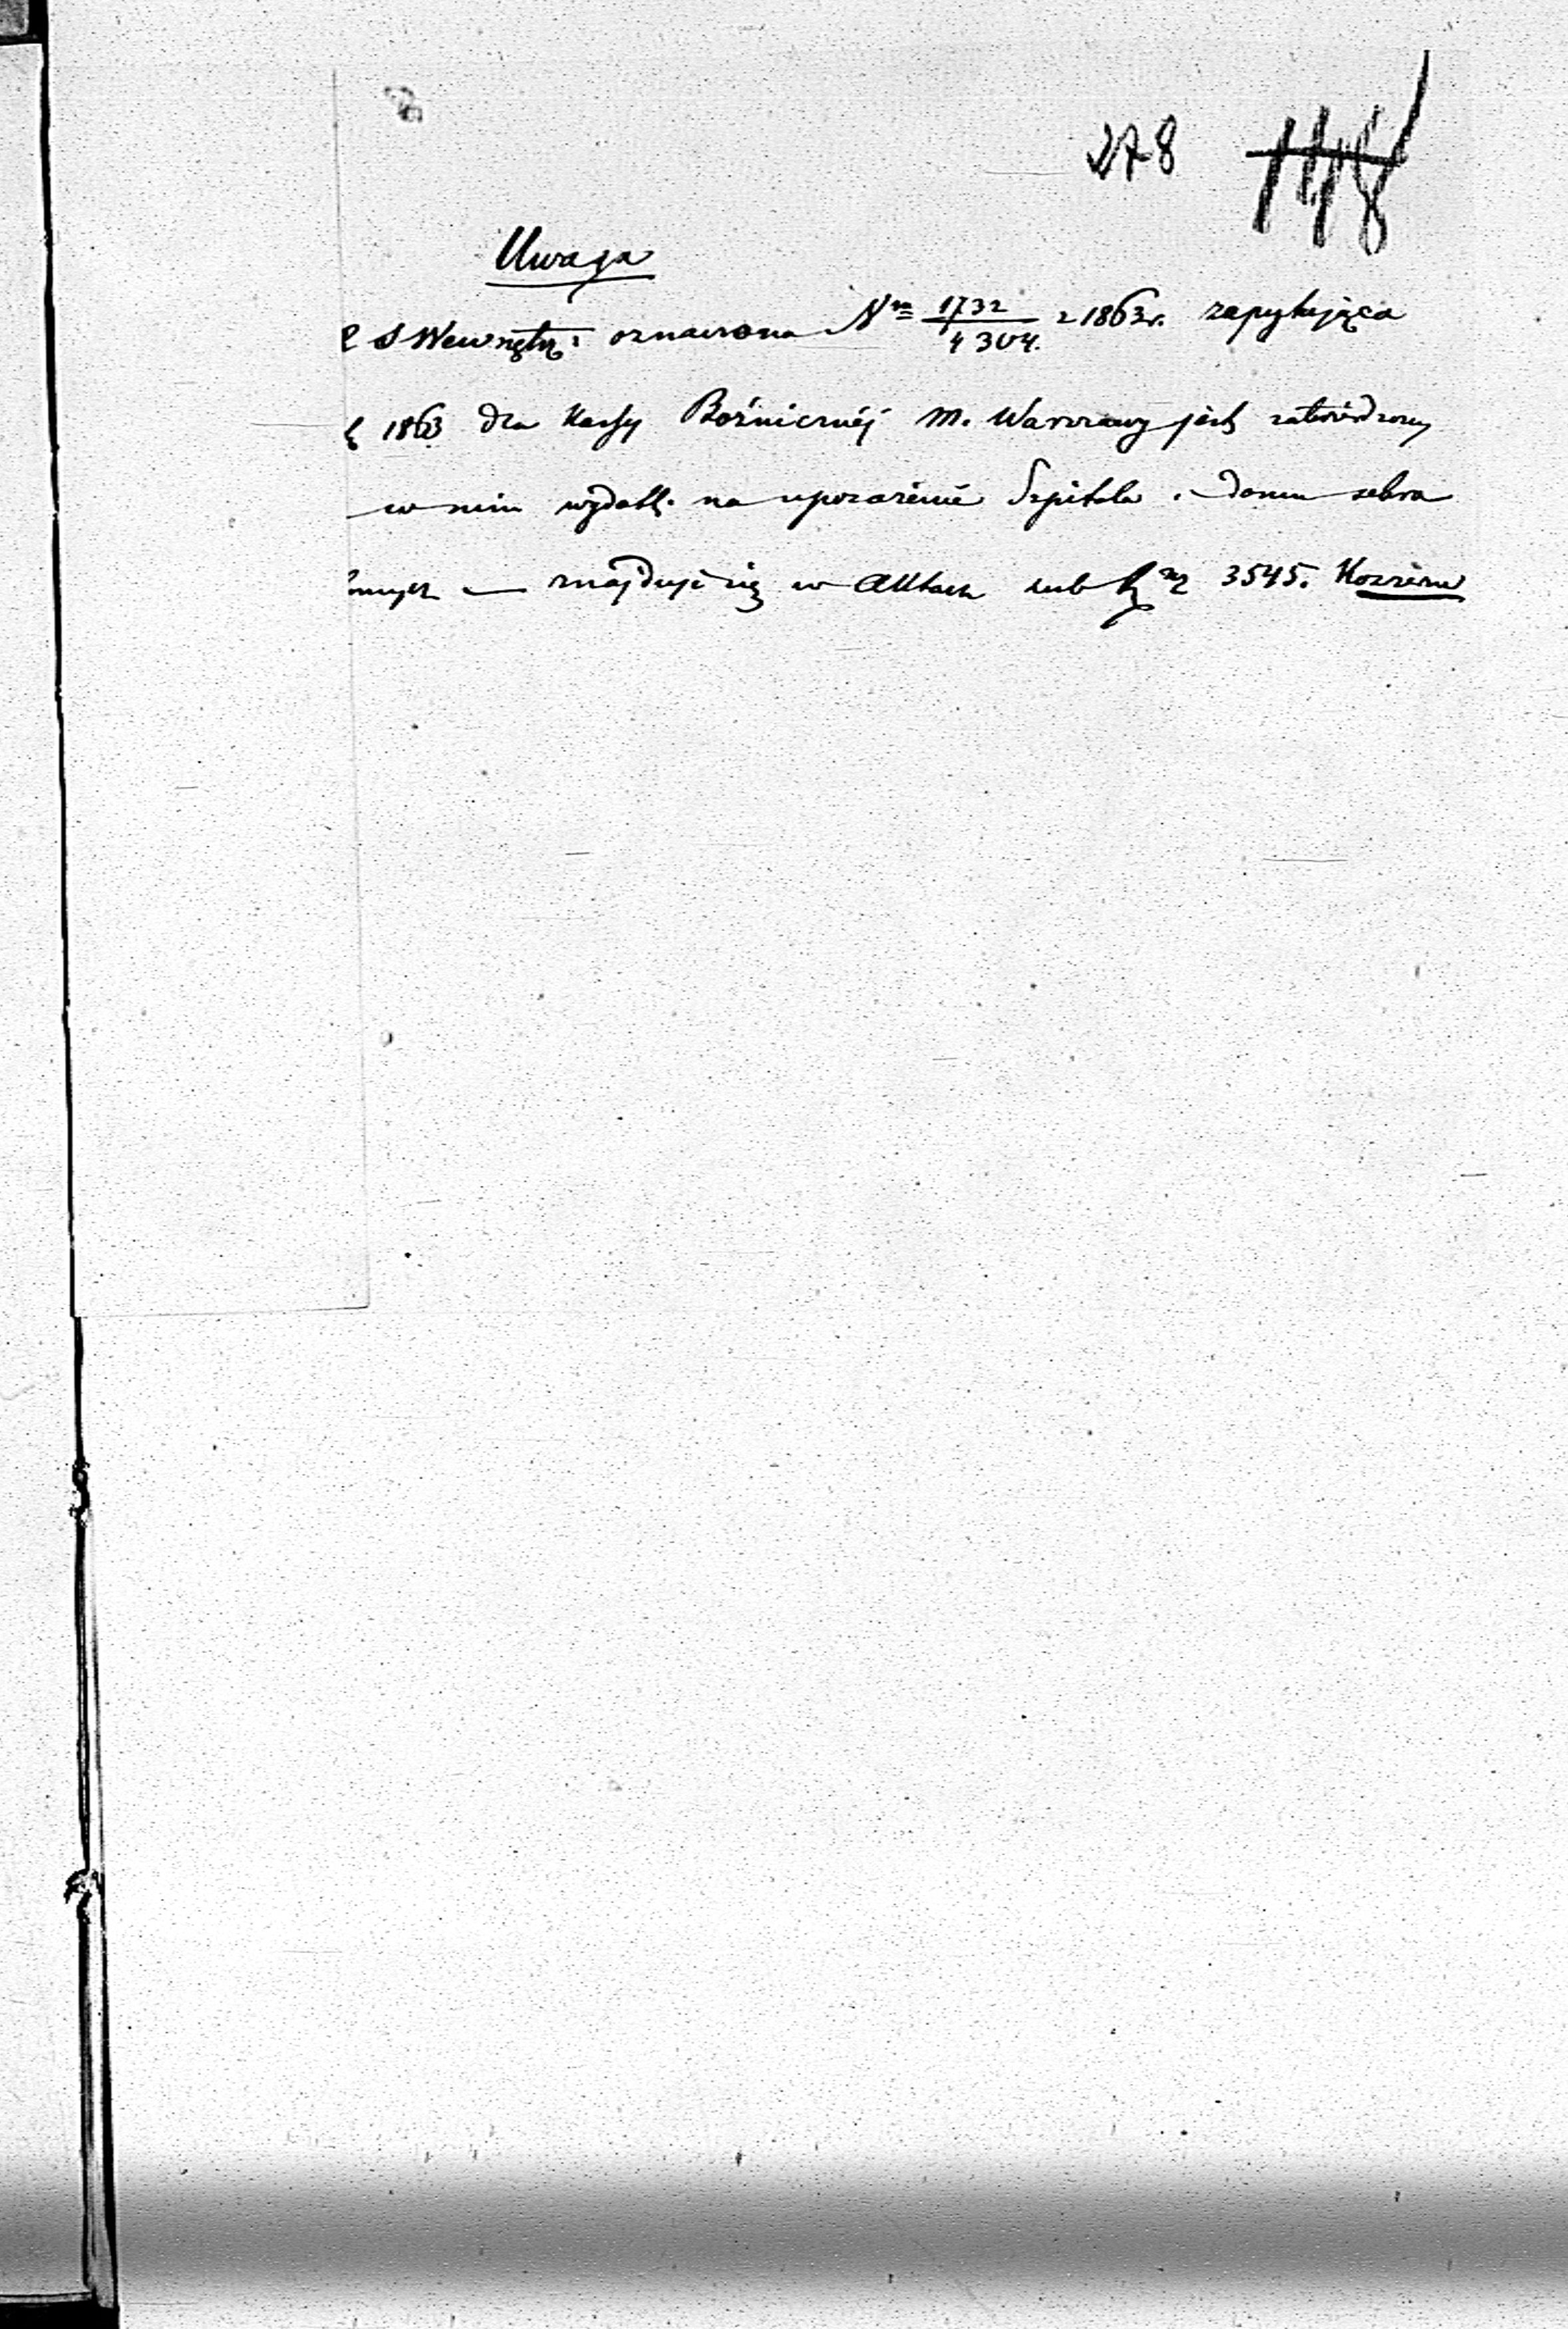 278 1118
Uwaga
S Wewnętrz: oznaczona Nrm 1732/4304. z 1863 r. zapytująca
1863 dla Kassy Bożnicznéj M. Warszawy jest zatwierdzony
w nim wydatk. na uposażenie Szpitala i domu schro
znajduje się w Aktach sub 3545.